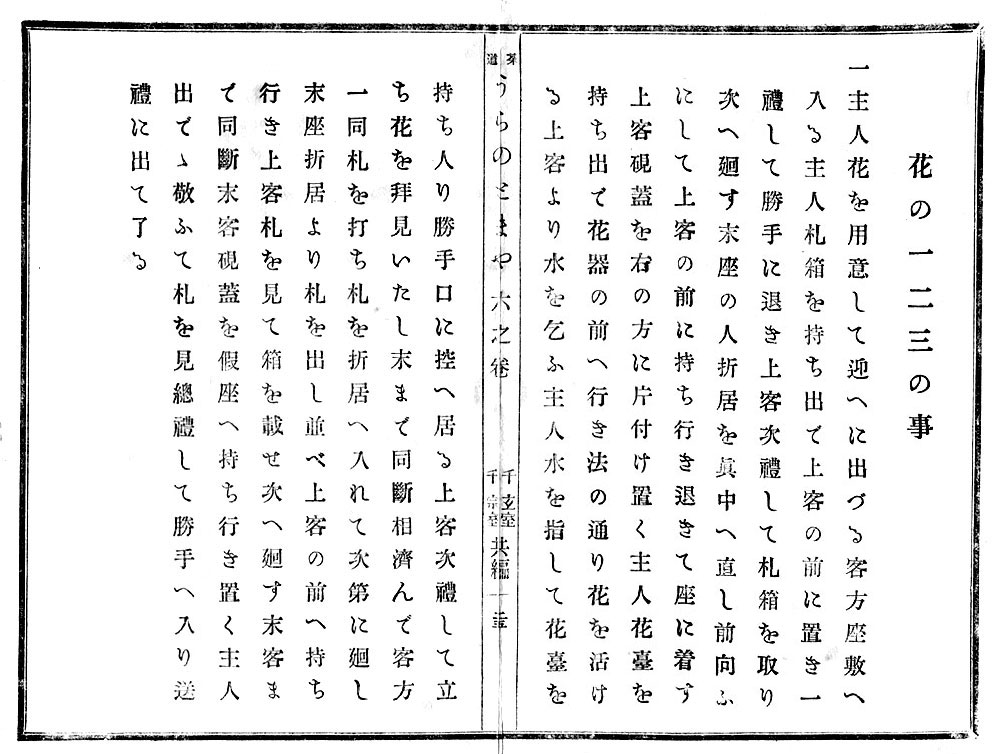 花の一二三の事
一主人花を用意して迎へに出づる客方座敷へ
入る主人札箱を持ち出て上客の前に置き一
禮して勝手に退き上客次禮して札箱を取り
次へ廻す末座の人折居を眞中へ直し前向ふ
にして上客の前に持ち行き退きて座に着す
上客硯蓋を右の方に片付け置く主人花臺を
持ち出て花器の前へ行き法の通り花を活け
る上客より水を乞ふ主人水を指して花臺を
茶道 うらのとまや六之卷 千玄室 千宗室 共編 十三
持ち入り勝手口に控へ居る上客次禮して立
ち花を拜見いたし末まで同斷相濟んで客方
一同札を打ち札を折居へ入れて次第に廻し
末座折居より札を出し並べ上客の前へ持ち
行き上客札を見て箱を載せ次へ廻す末客ま
で同斷末客硯蓋を假座へ持ち行き置く主人
出でゝ敬ふて札を見總禮して勝手へ入り送
禮に出て了る